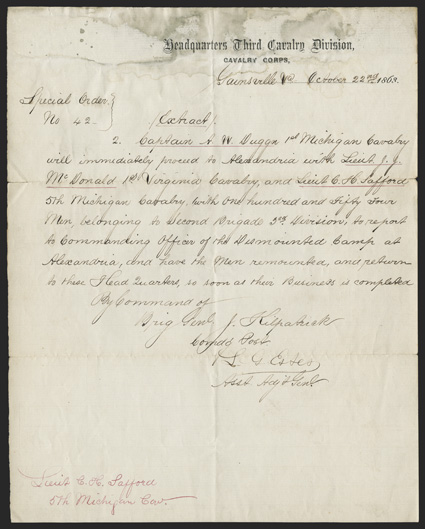 Headquarters Third Cavalry Division,
CAVALRY CORPS,
Gainsville Va October 22nd 1863.
Special Order
No 42
(Extract)
2. Captain A. W. Duggn 1st Michigan Cavalry
will immediately proceed to Alexandria with Lieut J. J.
McDonald 1st Virginia Cavalry, and Lieut C. H. Safford
5th Michigan Cavalry, with One hundred and Fifty Four
Men, belonging to Second Brigade 3rd Division, to report
to Commanding Officer of the Dismounted Camp at
Alexandria, and have the Men remounted, and return
to these Head Quarters, so soon as their Business is completed
By Command of
Brig Genl J. Kilpatrick
Comdg Post
L. G. Estes
Asst Adjt Genl
Lieut C. H. Safford
5th Michigan Cav.